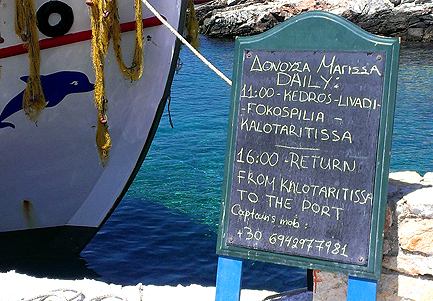 ΔΟΝΟΥΣΑ ΜΑΓΙΣΣΑ
DAILY:
11:00-KEDROS-LIVADI-
-FOKOSPILIA-
KALOTARITISSA
16:00-RETURN
FROM KALOTARITISSA
TO THE PORT
Captain's mob:
+30 6942977981